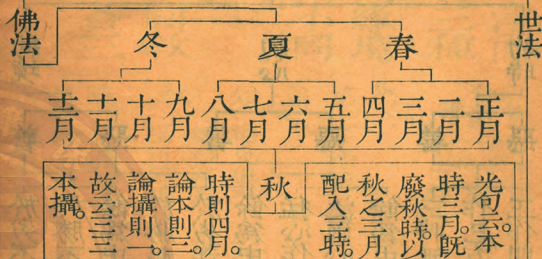 世法
春
夏
冬
佛法
正月
二月
三月
四月
五月
六月
七月
八月
九月
十月
十一月
十二月
光句云。本
時三月。旣
廢秋時。以
秋之三月
配入三時。
秋
時則四月。
論本則三。
論攝則一。
故云三三
本攝。